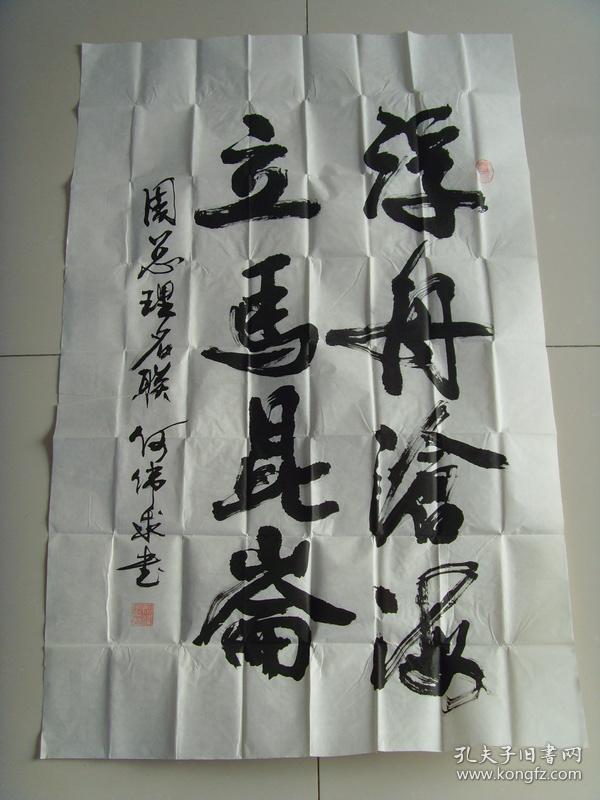 浮舟沧海
立马昆崙
周总理名联 何伟成书
孔夫子旧书网
www.kongfz.com